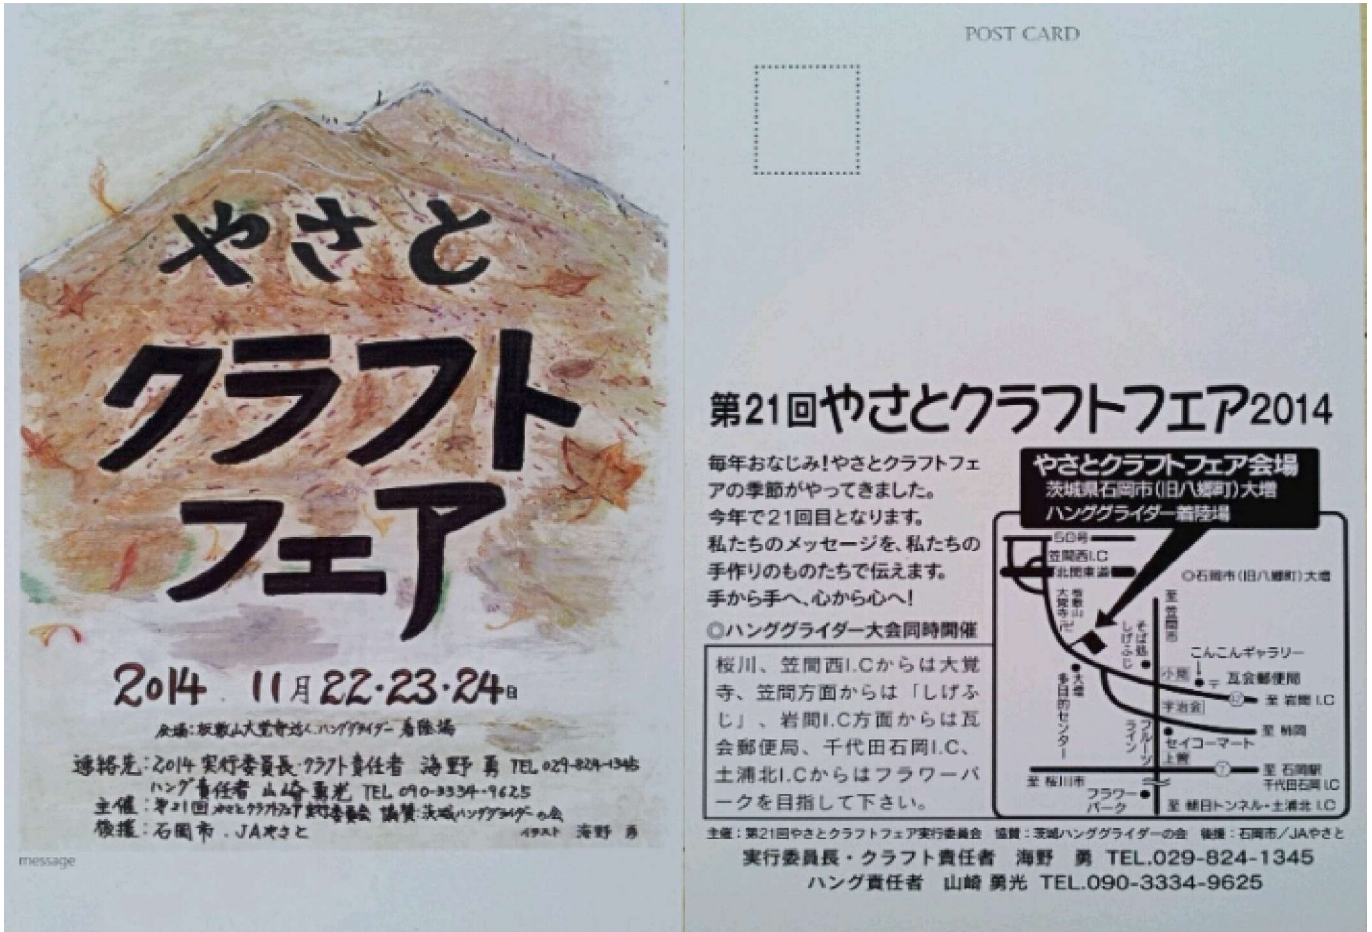 やさと
クラフト
フェア
2014. 11月22・23・24日
会場:板敷山大覚寺近くハンググライダー着陸場
連絡先:2014 実行委員長・クラフト責任者 海野 勇 TEL 029-824-1345
ハング責任者 山崎勇光 TEL 090-3334-9625
主催:第21回やさとクラフトフェア実行委員会 協賛:茨城ハンググライダーの会
後援:石岡市.JAやさと
イラスト 海野 勇
message
POST CARD
第21回やさとクラフトフェア2014
毎年おなじみ!やさとクラフトフェ
アの季節がやってきました。
今年で21回目となります。
私たちのメッセージを、私たちの
手作りのものたちで伝えます。
手から手へ、心から心へ!
◎ハンググライダー大会同時開催
桜川、笠間西I.Cからは大覚
寺、笠間方面からは「しげふ
じ」、岩間I.C方面からは瓦
会郵便局、千代田石岡I.C、
土浦北I.Cからはフラワーパ
ークを目指して下さい。
やさとクラフトフェア会場
茨城県石岡市(旧八郷町)大増
ハンググライダー着陸場
50号
笠間西I.C
北関東道
◎石岡市(旧八郷町)大増
板敷山
大覚寺卍
至 笠間市
そば処
しげふじ
こんこんギャラリー
瓦会郵便局
〒
大増
多目的センター
小屋
宇治会
42
至 岩間 I.C
至 柿岡
フルーツ
ライン
セイコーマート
上曽
7
至 桜川市
至 石岡駅
千代田石岡 I.C
フラワー
パーク
至 朝日トンネル・土浦北 I.C
主催:第21回やさとクラフトフェア実行委員会 協賛:茨城ハンググライダーの会 後援:石岡市/JAやさと
実行委員長・クラフト責任者 海野 勇 TEL.029-824-1345
ハング責任者 山崎 勇光 TEL.090-3334-9625